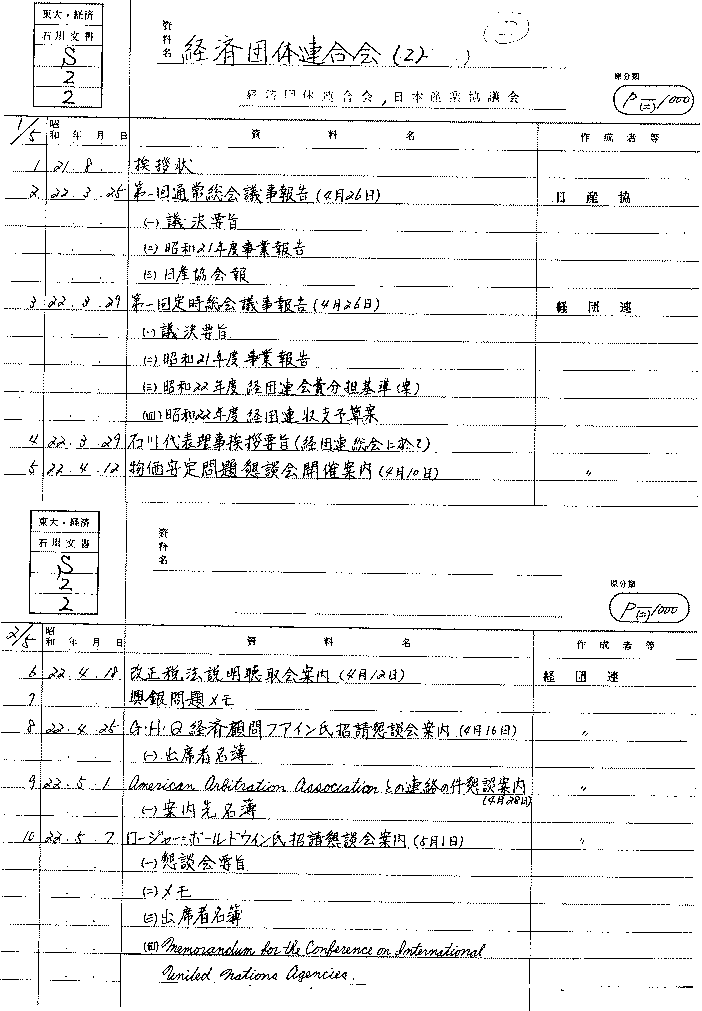 東大・経済
石川文書
S
2
2
資料名 経済団体連合会 (2)
経済団体連合会, 日本産業協議会
原分類
P(二)/1000
1/5 昭和 年 月 日 資料名 作成者等
1 21. 8. 挨拶状
2 22. 3. 25 第一回通常総会議事報告 (4月26日) 日産協
(一) 議決要旨
(二) 昭和21年度事業報告
(三) 日産協会報
3 22. 3. 29 第一回定時総会議事報告 (4月26日) 経団連
(一) 議決要旨
(二) 昭和21年度事業報告
(三) 昭和22年度経団連会費分担基準 (案)
(四) 昭和22年度経団連収支予算案
4 22. 3. 29 石川代表理事挨拶要旨 (経団連総会に於て)
5 22. 4. 12 物価安定問題懇談会開催案内 (4月10日) 〃
東大・経済
石川文書
S
2
2
資料名
原分類
P(二)/1000
2/5 昭和 年 月 日 資料名 作成者等
6 22. 4. 18 改正税法説明聴取会案内 (4月12日) 経団連
7 興銀問題メモ
8 22. 4. 25 G・H・Q経済顧問ファイン氏招請懇談会案内 (4月16日) 〃
(一) 出席者名簿
9 22. 5. 1 American Arbitration Associationとの連絡の件懇談案内 〃
(4月28日)
(一) 案内先名簿
10 22. 5. 7 ロージャー・ボールドウイン氏招請懇談会案内 (5月1日) 〃
(一) 懇談会要旨
(二) メモ
(三) 出席者名簿
(四) Memorandum for the Conference on International
United Nations Agencies.